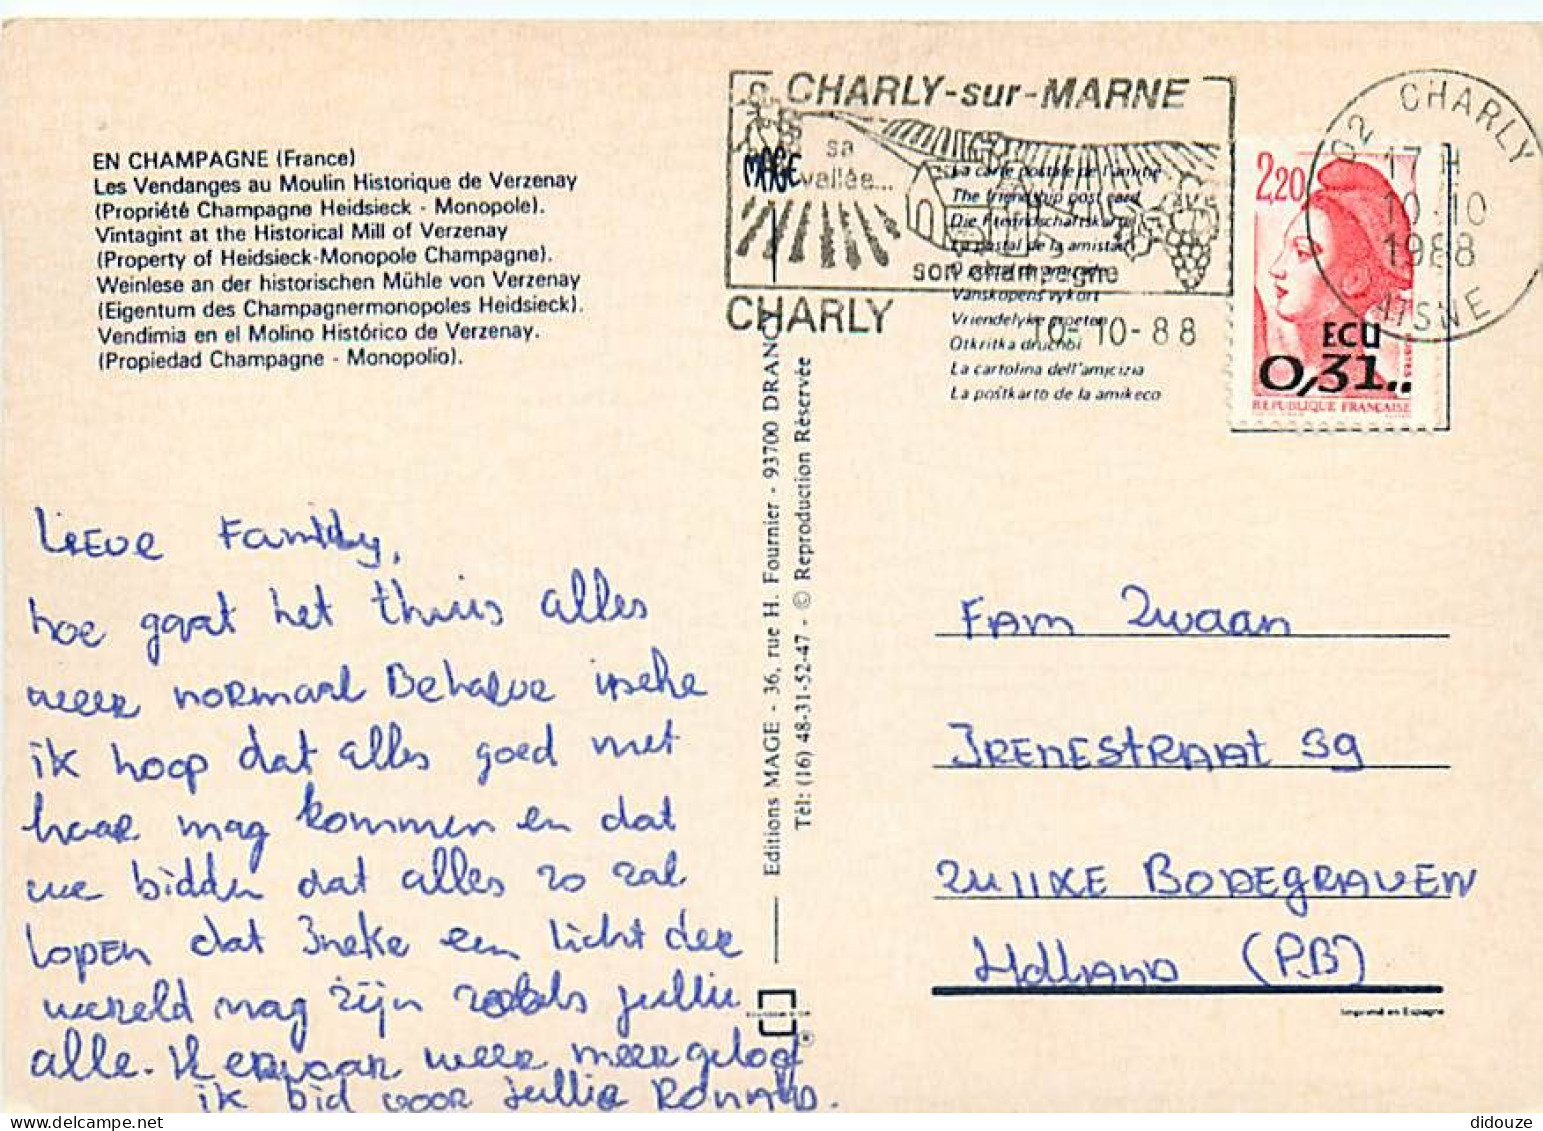 EN CHAMPAGNE (France)
Les Vendanges au Moulin Historique de Verzenay
(Propriété Champagne Heidsieck - Monopole).
Vintagint at the Historical Mill of Verzenay
(Property of Heidsieck-Monopole Champagne).
Weinlese an der historischen Mühle von Verzenay
(Eigentum des Champagnermonopoles Heidsieck).
Vendimia en el Molino Histórico de Verzenay.
(Propiedad Champagne - Monopolio).
CHARLY-sur-MARNE
sa
vallée...
son champagne
CHARLY
10-10-88
MAGE
La carte postale de l'amitié
The friendship post card
Die Freundschaftskarte
La postal de la amistad
Vanskopens vykort
Vriendelyke groeten
Otkritka druchbi
La cartolina dell'amicizia
La postkarto de la amikeco
2,20
ECU
0,31..
REPUBLIQUE FRANÇAISE
02 CHARLY
17 H
10-10
1988
AISNE
Lieve Family,
hoe gaat het thuis alles
weer normaal Behalve
ik hoop dat alles goed met
haar mag kommen en dat
we bidden dat alles zo zal
lopen dat Ineke een licht der
wereld mag zijn zoals jullie
alle. Ik ervaar weer meer geloof
ik bid voor jullie Ronald.
Editions MAGE - 36, rue H. Fournier - 93700 DRANCY
Tél: (16) 48-31-52-47 - © Reproduction Réservée
Fam Zwaan
Irenestraat 39
2411XE Bodegraven
Holland (P.B)
Imprimé en Espagne
didouze